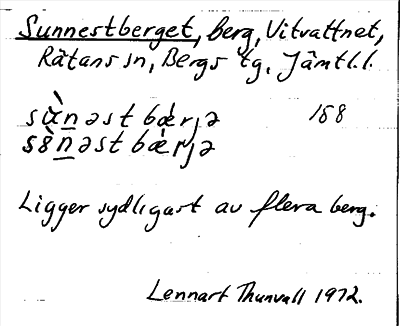 Sunnestberget, berg, Vitvattnet,
Rätans sn, Bergs tg, Jämtl.l.
sὰn̲əst bǽrjə 158
sɵ̀n̲əst bǽrjə
Ligger sydligast av flera berg.
Lennart Thunvall 1972.